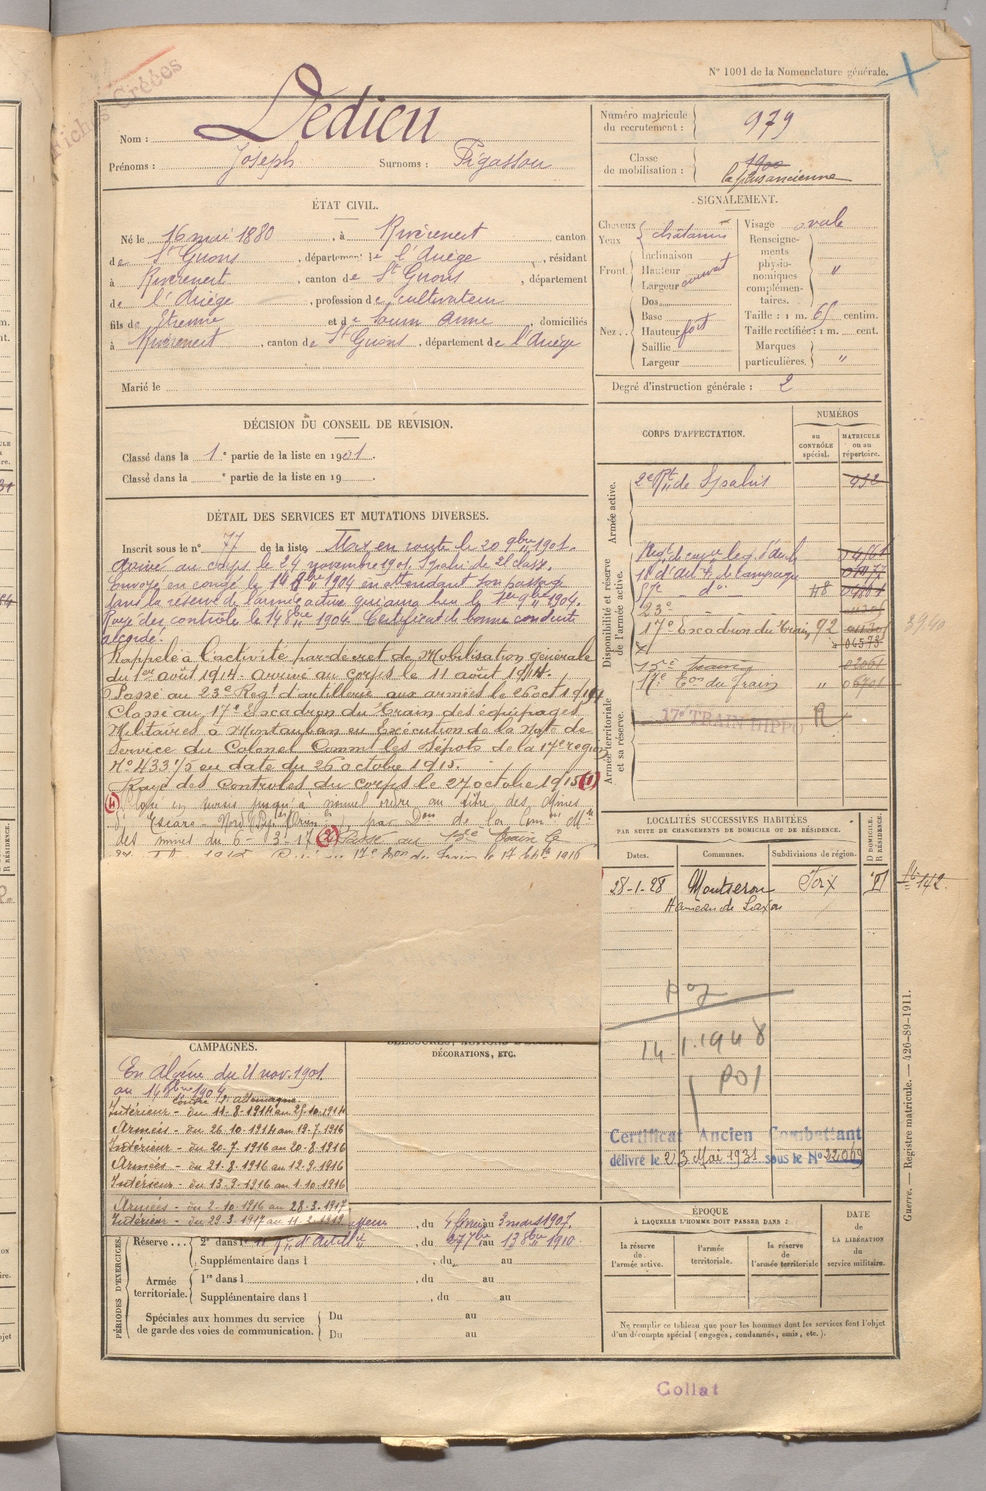 Fiches Créées
N° 1001 de la Nomenclature générale.
Nom : Dedieu
Prénoms : Joseph Surnoms : Pigassou
Numéro matricule du recrutement : 979
Classe de mobilisation : 1900
la plus ancienne
ÉTAT CIVIL.
Né le 16 mai 1880, à Rivèrenert canton
de St Girons, département de l'Ariège, résidant
à Rivèrenert, canton de St Girons, département
de l'Ariège, profession de cultivateur
fils de Etienne et de Anne, domiciliés
à Rivèrenert, canton de St Girons, département de l'Ariège
Marié le
SIGNALEMENT.
Cheveux châtains
Yeux
Front Inclinaison
Hauteur
Largeur couvert
Nez Dos
Base
Hauteur fort
Saillie
Largeur
Visage ovale
Renseignements physionomiques complémentaires. "
Taille : 1 m. 65 centim.
Taille rectifiée : 1 m. cent.
Marques particulières. "
Degré d'instruction générale : 2
DÉCISION DU CONSEIL DE RÉVISION.
Classé dans la 1e partie de la liste en 1901.
Classé dans la e partie de la liste en 19
DÉTAIL DES SERVICES ET MUTATIONS DIVERSES.
Inscrit sous le n° 77 de la liste Mis en route le 20 9bre 1901.
Arrivé au corps le 24 novembre 1901. Spahi de 2e classe.
Envoyé en congé le 14 8bre 1904 en attendant son passage
dans la réserve de l'armée active qui aura lieu le 1er 9bre 1904.
Rayé des contrôles le 14 8bre 1904. Certificat de bonne conduite
accordé.
Rappelé à l'activité par decret de Mobilisation générale
du 1er août 1914. arrivé au corps le 11 août 1914.
Passé au 23e Regt d'artillerie aux armées le 26 oct 1914
Classé au 17e Escadron du Train des équipages
Militaires à Montauban en Execution de la Note de
Service du Colonel Commt les Dépots de la 17e region
N° 4331/5 en date du 26 octobre 1915.
Rayé des Controles du corps le 27 octobre 1915 (1)
(4) en sursis jusqu'à nouvel ordre au titre des Mines
des mines du 6-3-17 (2) Passé au 15e Train le
CORPS D'AFFECTATION.
NUMÉROS
au CONTRÔLE spécial.
MATRICULE ou au répertoire.
Armée active.
2e Rgt de Spahis 932
Disponibilité et réserve de l'armée active.
d'art. de campagne
H8
23e
17e Escadron du Train 92
3940
15e Train
17e Eon du Train "
Armée territoriale et sa réserve.
17e TRAIN HIPPO R
LOCALITÉS SUCCESSIVES HABITÉES
PAR SUITE DE CHANGEMENTS DE DOMICILE OU DE RÉSIDENCE.
Dates. Communes. Subdivisions de région. D DOMICILE. R RÉSIDENCE.
28-1-28 Montseron Foix D
Hameau de
142
14.1.1948
Certificat Ancien Combattant
délivré le 23 Mai 1931 sous le N° 22069
CAMPAGNES.
En Algérie du 21 nov. 1901
au 14 8bre 1904
Contre l'Allemagne.
Intérieur - du 11-8-1914 au 25-10-1914
Armées - du 26-10-1914 au 19-7-1916
Intérieur - du 20-7-1916 au 20-8-1916
Armées - du 21-8-1916 au 12-9-1916
Intérieur - du 13-9-1916 au 1-10-1916
Armées - du 2-10-1916 au 28-3-1917
Intérieur - du 29-3-1917 au 11-2-1919
BLESSURES, ACTIONS D'ÉCLAT,
DÉCORATIONS, ETC.
PÉRIODES D'EXERCICES.
, du 4 février au 3 mars 1907.
Réserve... 2e dans l , du 27 7bre au 13 8bre 1910.
Supplémentaire dans l , du au
Armée territoriale. 1re dans l , du au
Supplémentaire dans l , du au
Spéciales aux hommes du service de garde des voies de communication. Du au
Du au
ÉPOQUE
À LAQUELLE L'HOMME DOIT PASSER DANS :
la réserve de l'armée active.
l'armée territoriale.
la réserve de l'armée territoriale
DATE de LA LIBÉRATION du service militaire.
Ne remplir ce tableau que pour les hommes dont les services font l'objet
d'un décompte spécial (engagés, condamnés, omis, etc.).
Guerre. — Registre matricule. — 426-89-1911.
Collat